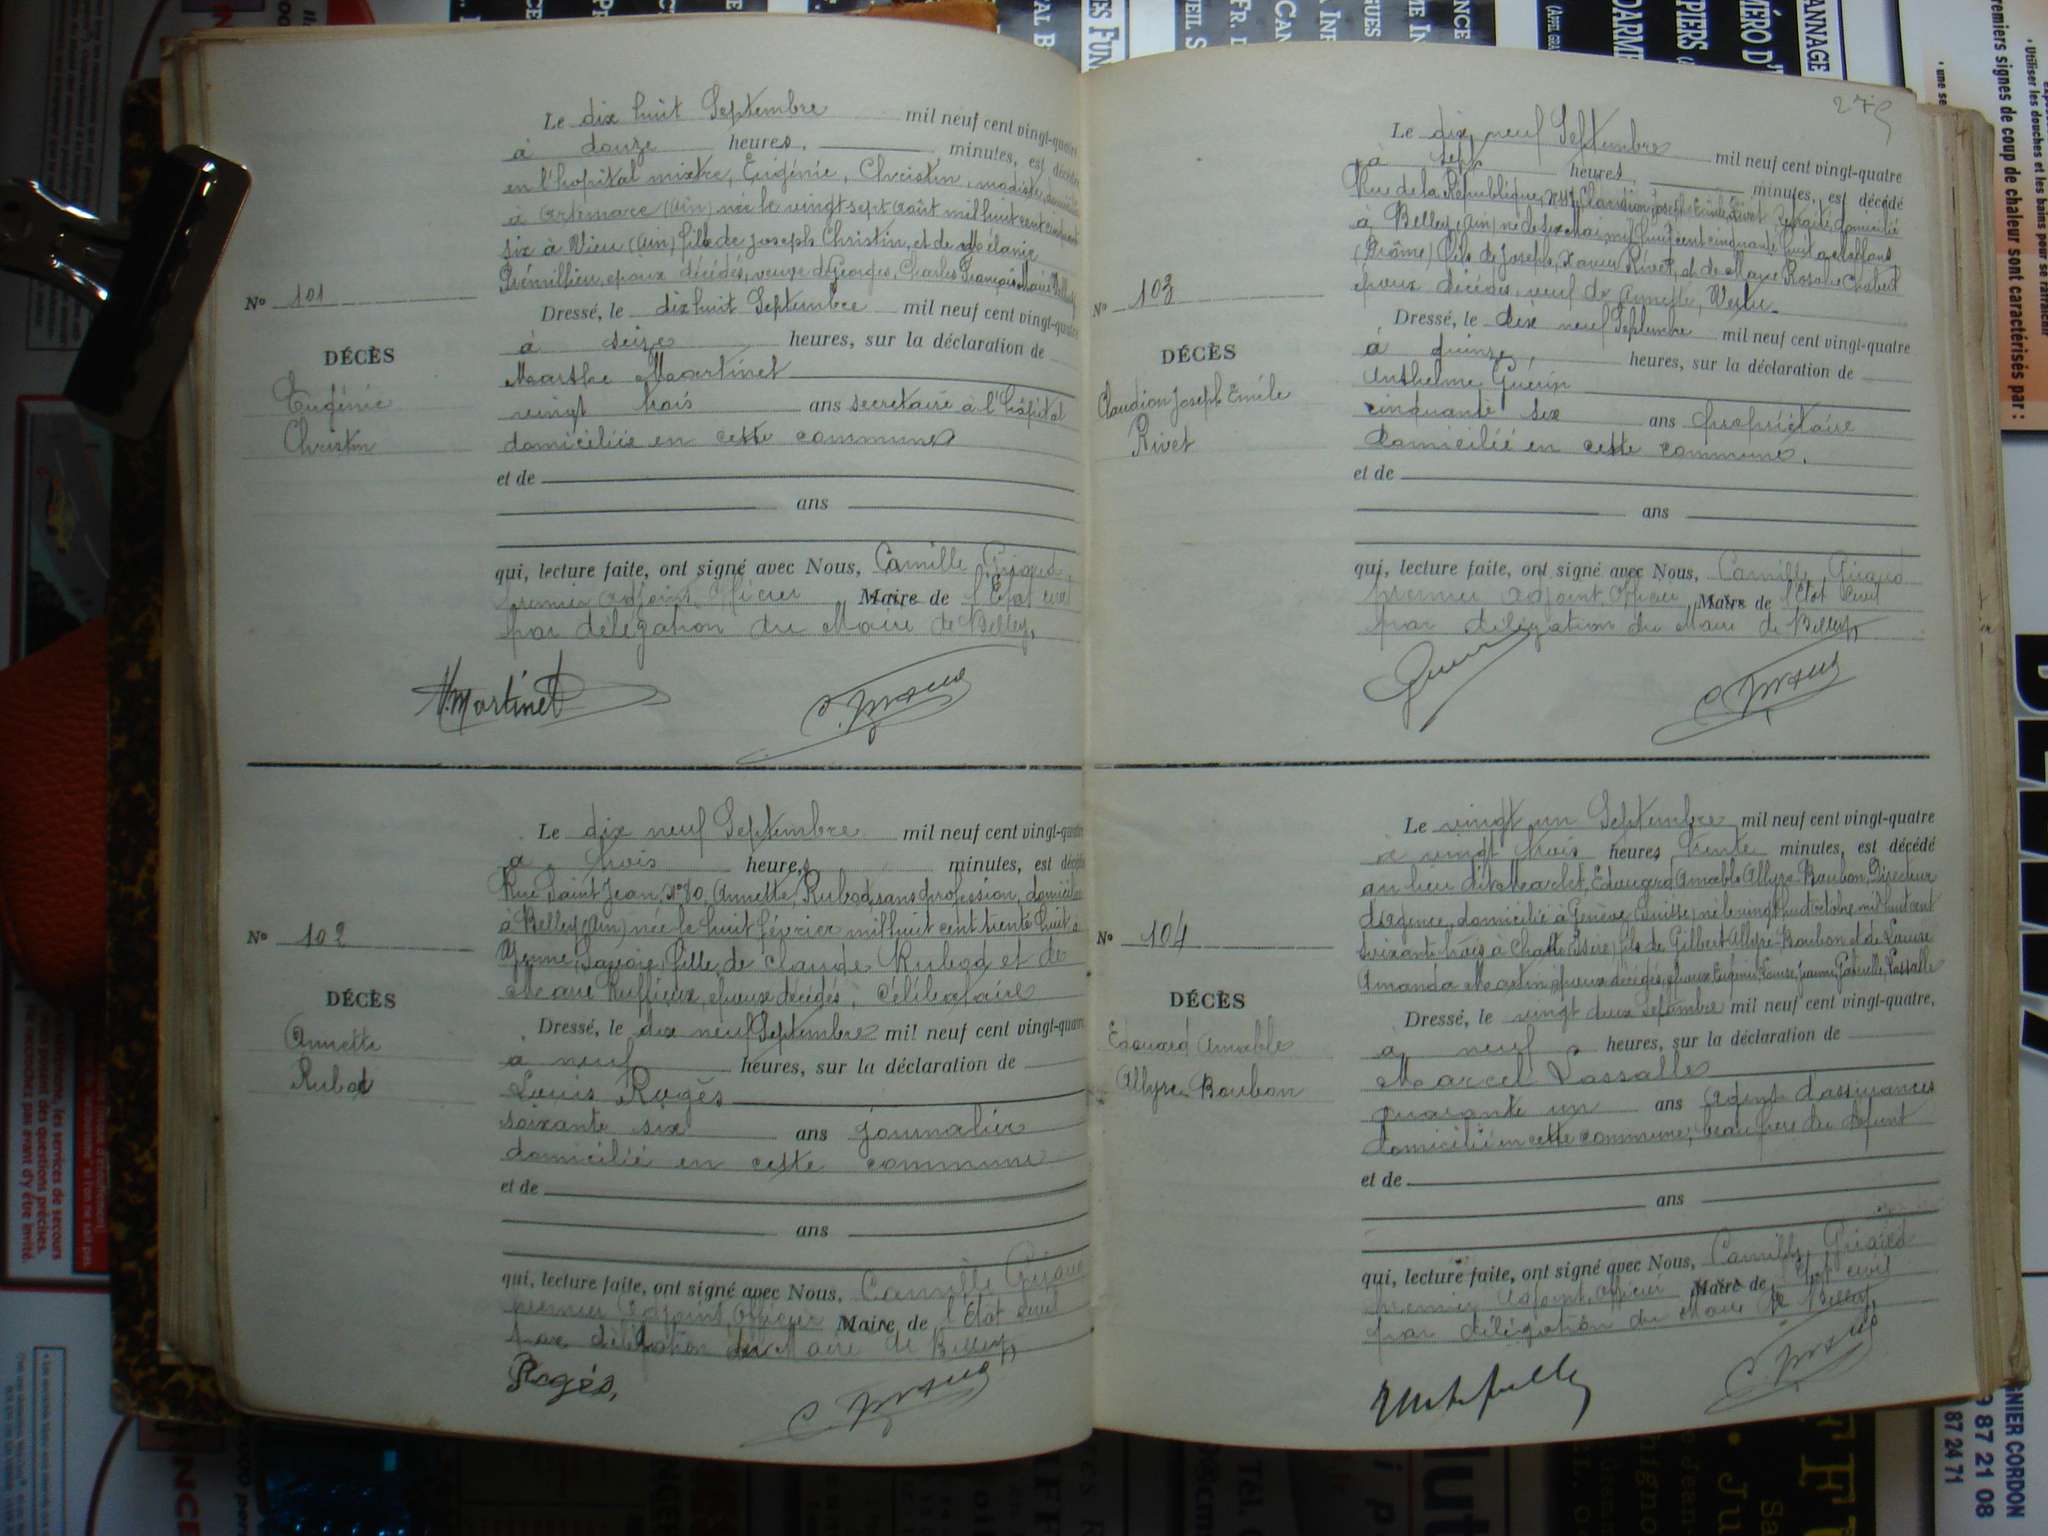 275
Le dix huit Septembre mil neuf cent vingt-quatre
à douze heures, minutes, est décédée
en l'hopital mixtre, Eugénie, Christin, modiste,
à Artemare (Ain) née le vingt sept Août mil huit cent cinquante
six à Vieu (Ain) fille de Joseph Christin, et de Mélanie
époux décédés, veuve de Georges, Charles François Marie
Nº 101
Dressé, le dix huit Septembre mil neuf cent vingt-quatre
à seize heures, sur la déclaration de
DÉCÈS
Eugénie
Christin
Marthe Martinet
vingt trois ans secretaire à l'hôpital
domiciliée en cette commune
et de
ans
qui, lecture faite, ont signé avec Nous, Camille Giraud
premier adjoint, Officier Maire de l'Etat civil
par délégation du Maire de Belley,
M. Martinet
Le dix neuf Septembre mil neuf cent vingt-quatre
à trois heures, minutes, est décédée
Rue Saint Jean, Nº 80, Annette, Rubod, sans profession, domiciliée
à Belley (Ain) née le huit février mil huit cent trente huit à
Yenne, Savoie, fille de Claude Rubod et de
Marie Ruffieux, époux décédés, célibataire
Nº 102
Dressé, le dix neuf Septembre mil neuf cent vingt-quatre
à neuf heures, sur la déclaration de
DÉCÈS
Annette
Rubod
Louis Rogès
soixante six ans journalier
domicilié en cette commune
et de
ans
qui, lecture faite, ont signé avec Nous, Camille Giraud
premier adjoint Officier Maire de l'Etat civil
par délégation du Maire de Belley,
Rogès,
Le dix neuf Septembre mil neuf cent vingt-quatre
à sept heures, minutes, est décédé
Rue de la République, Claudion Joseph Emile Rivet, Retraité, domicilié
à Belley, (Ain) né le six Mai mil huit cent cinquante huit à
(Drôme) fils de Joseph, Xavier Rivet, et de Marie Rosalie Chabert
époux décédés, veuf de Annette,
Nº 103
Dressé, le dix neuf Septembre mil neuf cent vingt-quatre
à quinze, heures, sur la déclaration de
DÉCÈS
Claudion Joseph Emile
Rivet
Anthelme Guérin
cinquante six ans propriétaire
domiciliée en cette commune.
et de
ans
qui, lecture faite, ont signé avec Nous, Camille Giraud
premier adjoint Officier Maire de l'Etat Civil
par délégation du Maire de Belley,
Le vingt un Septembre mil neuf cent vingt-quatre
à vingt trois heures trente minutes, est décédé
au lieu dit Edouard Amable Allyre-Boubon, Directeur
d'agence, domicilié à Genève (Suisse) né le vingt huit octobre mil huit cent
soixante trois à Chatte (Isère) fils de Gilbert Allyre-Boubon et de Louise
Amanda Martin, époux décédés, époux Eugénie, Louise, Jeanne, Gabrielle, Lassalle
Nº 104
Dressé, le vingt deux septembre mil neuf cent vingt-quatre,
à neuf heures, sur la déclaration de
DÉCÈS
Edouard Amable
Allyre-Boubon
Marcel Lassalle
quarante un ans agent d'assurances
domicilié en cette commune, beau frère du défunt
et de
ans
qui, lecture faite, ont signé avec Nous, Camille Giraud
premier adjoint, officier Maire de l'Etat civil
par délégation du Maire de Belley,